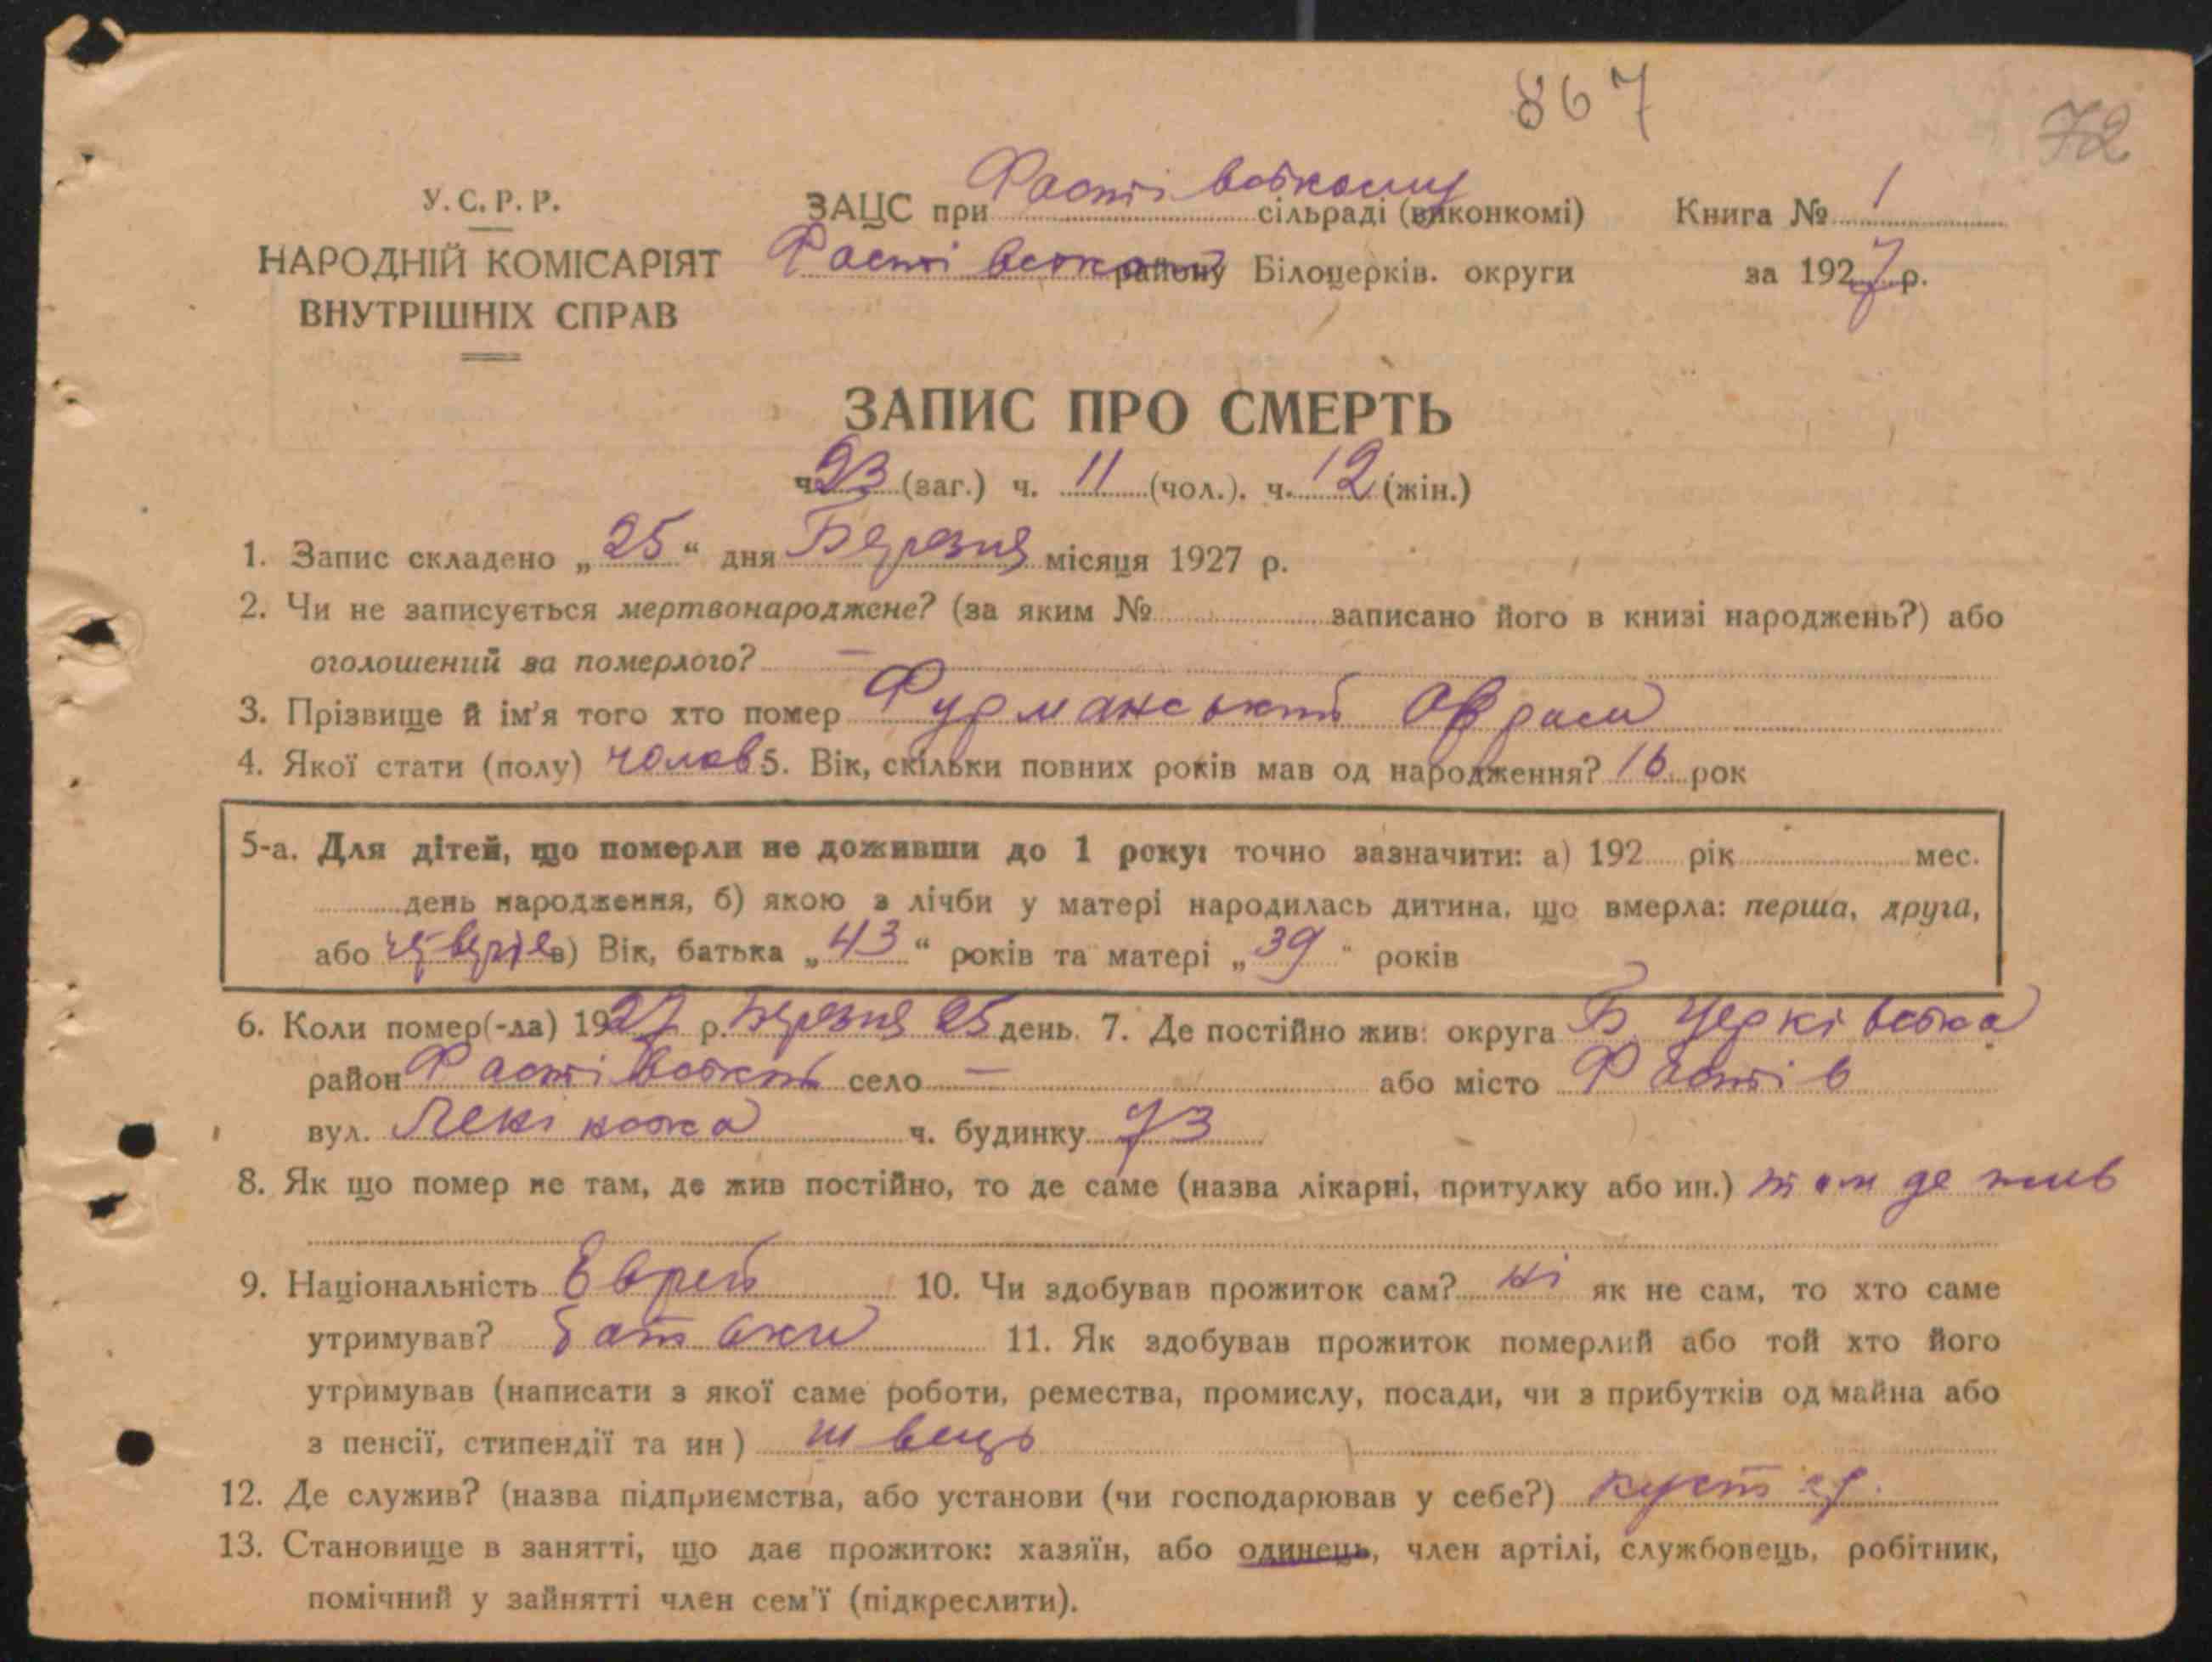 867
72
У.С.Р.Р.
НАРОДНІЙ КОМІСАРІЯТ
ВНУТРІШНІХ СПРАВ
ЗАЦС при Фастівському сільраді (виконкомі)
Фастівськ району Білоцерків. округи
Книга № 1
за 1927 р.
ЗАПИС ПРО СМЕРТЬ
ч. 23 (заг.) ч. 11 (чол.). ч. 12 (жін.)
1. Запис складено „25“ дня Березня місяця 1927 р.
2. Чи не записується мертвонароджене? (за яким № записано його в книзі народжень?) або
оголошений за померлого? —
3. Прізвище й ім'я того хто помер Фурманський Аврам
4. Якої стати (полу) чолов 5. Вік, скільки повних років мав од народження? 16 рок
5-а. Для дітей, що померли не доживши до 1 року: точно зазначити: а) 192 рік мес.
день народження, б) якою з лічби у матері народилась дитина, що вмерла: перша, друга,
або в) Вік, батька „43“ років та матері „39“ років
6. Коли помер(-ла) 1927 р. Березня 25 день. 7. Де постійно жив: округа Б Церківська
район Фастівський село — або місто Фастів
вул. Ленінська ч. будинку 73
8. Як що помер не там, де жив постійно, то де саме (назва лікарні, притулку або ин.) там де жив
9. Національність Еврей 10. Чи здобував прожиток сам? ні як не сам, то хто саме
утримував? батьки 11. Як здобував прожиток померлий або той хто його
утримував (написати з якої саме роботи, ремества, промислу, посади, чи з прибутків од майна або
з пенсії, стипендії та ин) швець
12. Де служив? (назва підприємства, або установи (чи господарював у себе?) кустар.
13. Становище в занятті, що дає прожиток: хазяїн, або одинець, член артілі, службовець, робітник,
помічний у зайнятті член сем'ї (підкреслити).